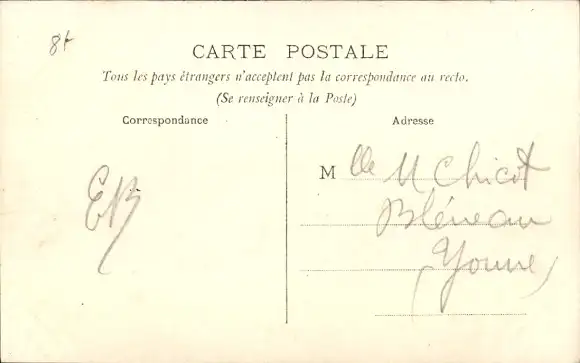 8f
CARTE POSTALE
Tous les pays étrangers n'acceptent pas la correspondance au recto.
(Se renseigner à la Poste)
Correspondance
Adresse
EB
Mlle M Chicot
Bléneau
(Yonne)